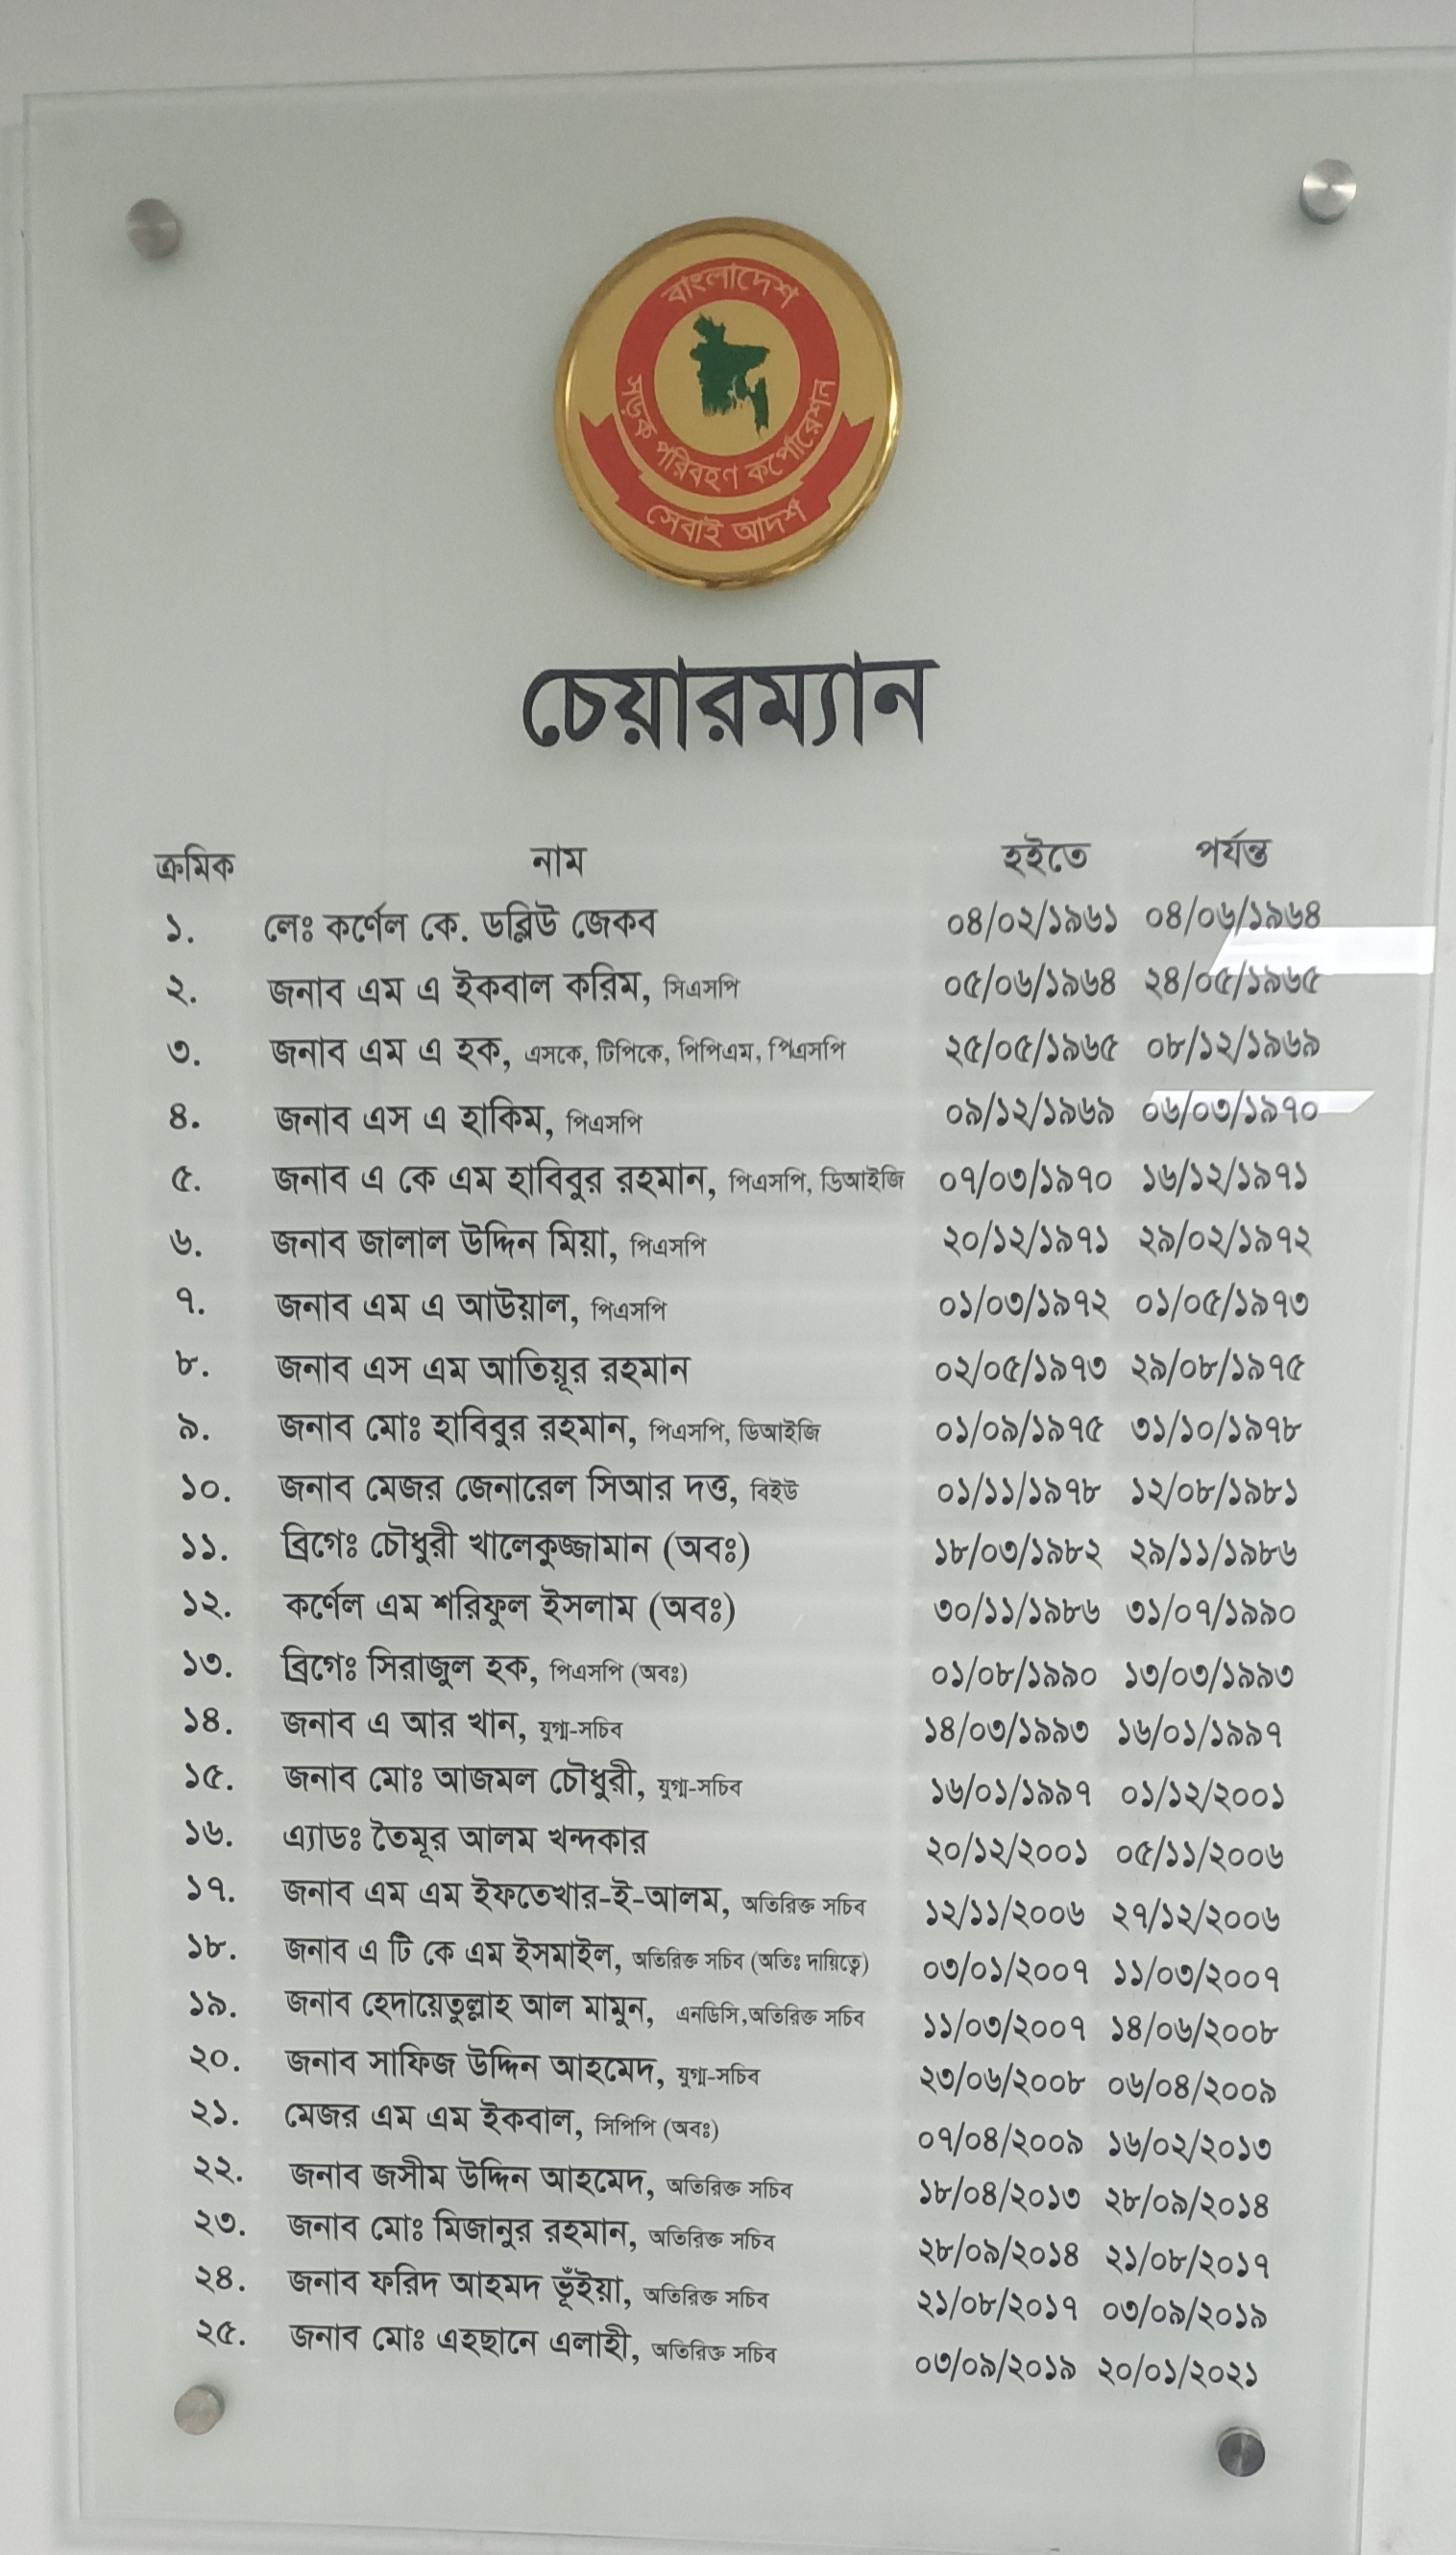 বাংলাদেশ
সড়ক পরিবহণ কর্পোরেশন
সেবাই আদর্শ
চেয়ারম্যান
ক্রমিক নাম হইতে পর্যন্ত
১. লেঃ কর্ণেল কে. ডব্লিউ জেকব ০৪/০২/১৯৬১ ০৪/০৬/১৯৬৪
২. জনাব এম এ ইকবাল করিম, সিএসপি ০৫/০৬/১৯৬৪ ২৪/০৫/১৯৬৫
৩. জনাব এম এ হক, এসকে, টিপিকে, পিপিএম, পিএসপি ২৫/০৫/১৯৬৫ ০৮/১২/১৯৬৯
৪. জনাব এস এ হাকিম, পিএসপি ০৯/১২/১৯৬৯ ০৬/০৩/১৯৭০
৫. জনাব এ কে এম হাবিবুর রহমান, পিএসপি, ডিআইজি ০৭/০৩/১৯৭০ ১৬/১২/১৯৭১
৬. জনাব জালাল উদ্দিন মিয়া, পিএসপি ২০/১২/১৯৭১ ২৯/০২/১৯৭২
৭. জনাব এম এ আউয়াল, পিএসপি ০১/০৩/১৯৭২ ০১/০৫/১৯৭৩
৮. জনাব এস এম আতিয়ূর রহমান ০২/০৫/১৯৭৩ ২৯/০৮/১৯৭৫
৯. জনাব মোঃ হাবিবুর রহমান, পিএসপি, ডিআইজি ০১/০৯/১৯৭৫ ৩১/১০/১৯৭৮
১০. জনাব মেজর জেনারেল সিআর দত্ত, বিইউ ০১/১১/১৯৭৮ ১২/০৮/১৯৮১
১১. ব্রিগেঃ চৌধুরী খালেকুজ্জামান (অবঃ) ১৮/০৩/১৯৮২ ২৯/১১/১৯৮৬
১২. কর্ণেল এম শরিফুল ইসলাম (অবঃ) ৩০/১১/১৯৮৬ ৩১/০৭/১৯৯০
১৩. ব্রিগেঃ সিরাজুল হক, পিএসপি (অবঃ) ০১/০৮/১৯৯০ ১৩/০৩/১৯৯৩
১৪. জনাব এ আর খান, যুগ্ম-সচিব ১৪/০৩/১৯৯৩ ১৬/০১/১৯৯৭
১৫. জনাব মোঃ আজমল চৌধুরী, যুগ্ম-সচিব ১৬/০১/১৯৯৭ ০১/১২/২০০১
১৬. এ্যাডঃ তৈমূর আলম খন্দকার ২০/১২/২০০১ ০৫/১১/২০০৬
১৭. জনাব এম এম ইফতেখার-ই-আলম, অতিরিক্ত সচিব ১২/১১/২০০৬ ২৭/১২/২০০৬
১৮. জনাব এ টি কে এম ইসমাইল, অতিরিক্ত সচিব (অতিঃ দায়িত্বে) ০৩/০১/২০০৭ ১১/০৩/২০০৭
১৯. জনাব হেদায়েতুল্লাহ আল মামুন, এনডিসি,অতিরিক্ত সচিব ১১/০৩/২০০৭ ১৪/০৬/২০০৮
২০. জনাব সাফিজ উদ্দিন আহমেদ, যুগ্ম-সচিব ২৩/০৬/২০০৮ ০৬/০৪/২০০৯
২১. মেজর এম এম ইকবাল, সিপিপি (অবঃ) ০৭/০৪/২০০৯ ১৬/০২/২০১৩
২২. জনাব জসীম উদ্দিন আহমেদ, অতিরিক্ত সচিব ১৮/০৪/২০১৩ ২৮/০৯/২০১৪
২৩. জনাব মোঃ মিজানুর রহমান, অতিরিক্ত সচিব ২৮/০৯/২০১৪ ২১/০৮/২০১৭
২৪. জনাব ফরিদ আহমদ ভূঁইয়া, অতিরিক্ত সচিব ২১/০৮/২০১৭ ০৩/০৯/২০১৯
২৫. জনাব মোঃ এহছানে এলাহী, অতিরিক্ত সচিব ০৩/০৯/২০১৯ ২০/০১/২০২১